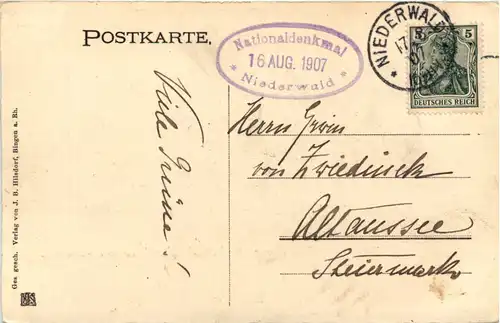 POSTKARTE.
Nationaldenkmal
16 AUG. 1907
* Niederwald *
NIEDERWALD
5 5
DEUTSCHES REICH
Viele Grüsse!
Herrn Erwin
von Zwiedineck
Altaussee
Steiermark
Ges. gesch. Verlag von J. B. Hilsdorf, Bingen a. Rh.